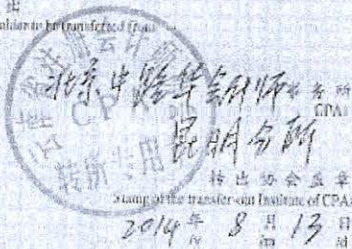 出
holder to be transferred from
北京中路华会计师事务所
CPAs
昆明分所
CPA
转所专用
转出协会盖章
Stamp of the transfer-out Institute of CPAs
2014年8月13日